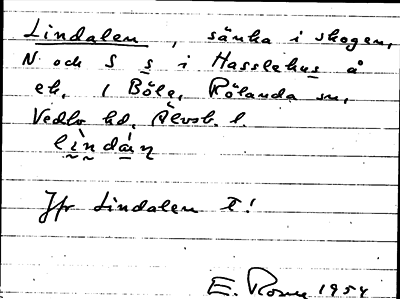 Lindalen, sänka i skogen,
N och S s i Hasslehus å
ek. 1 Böle, Rölanda sn,
Vedbo hd. Älvsb. l.
lìndán
Jfr Lindalen t!
E. 1954